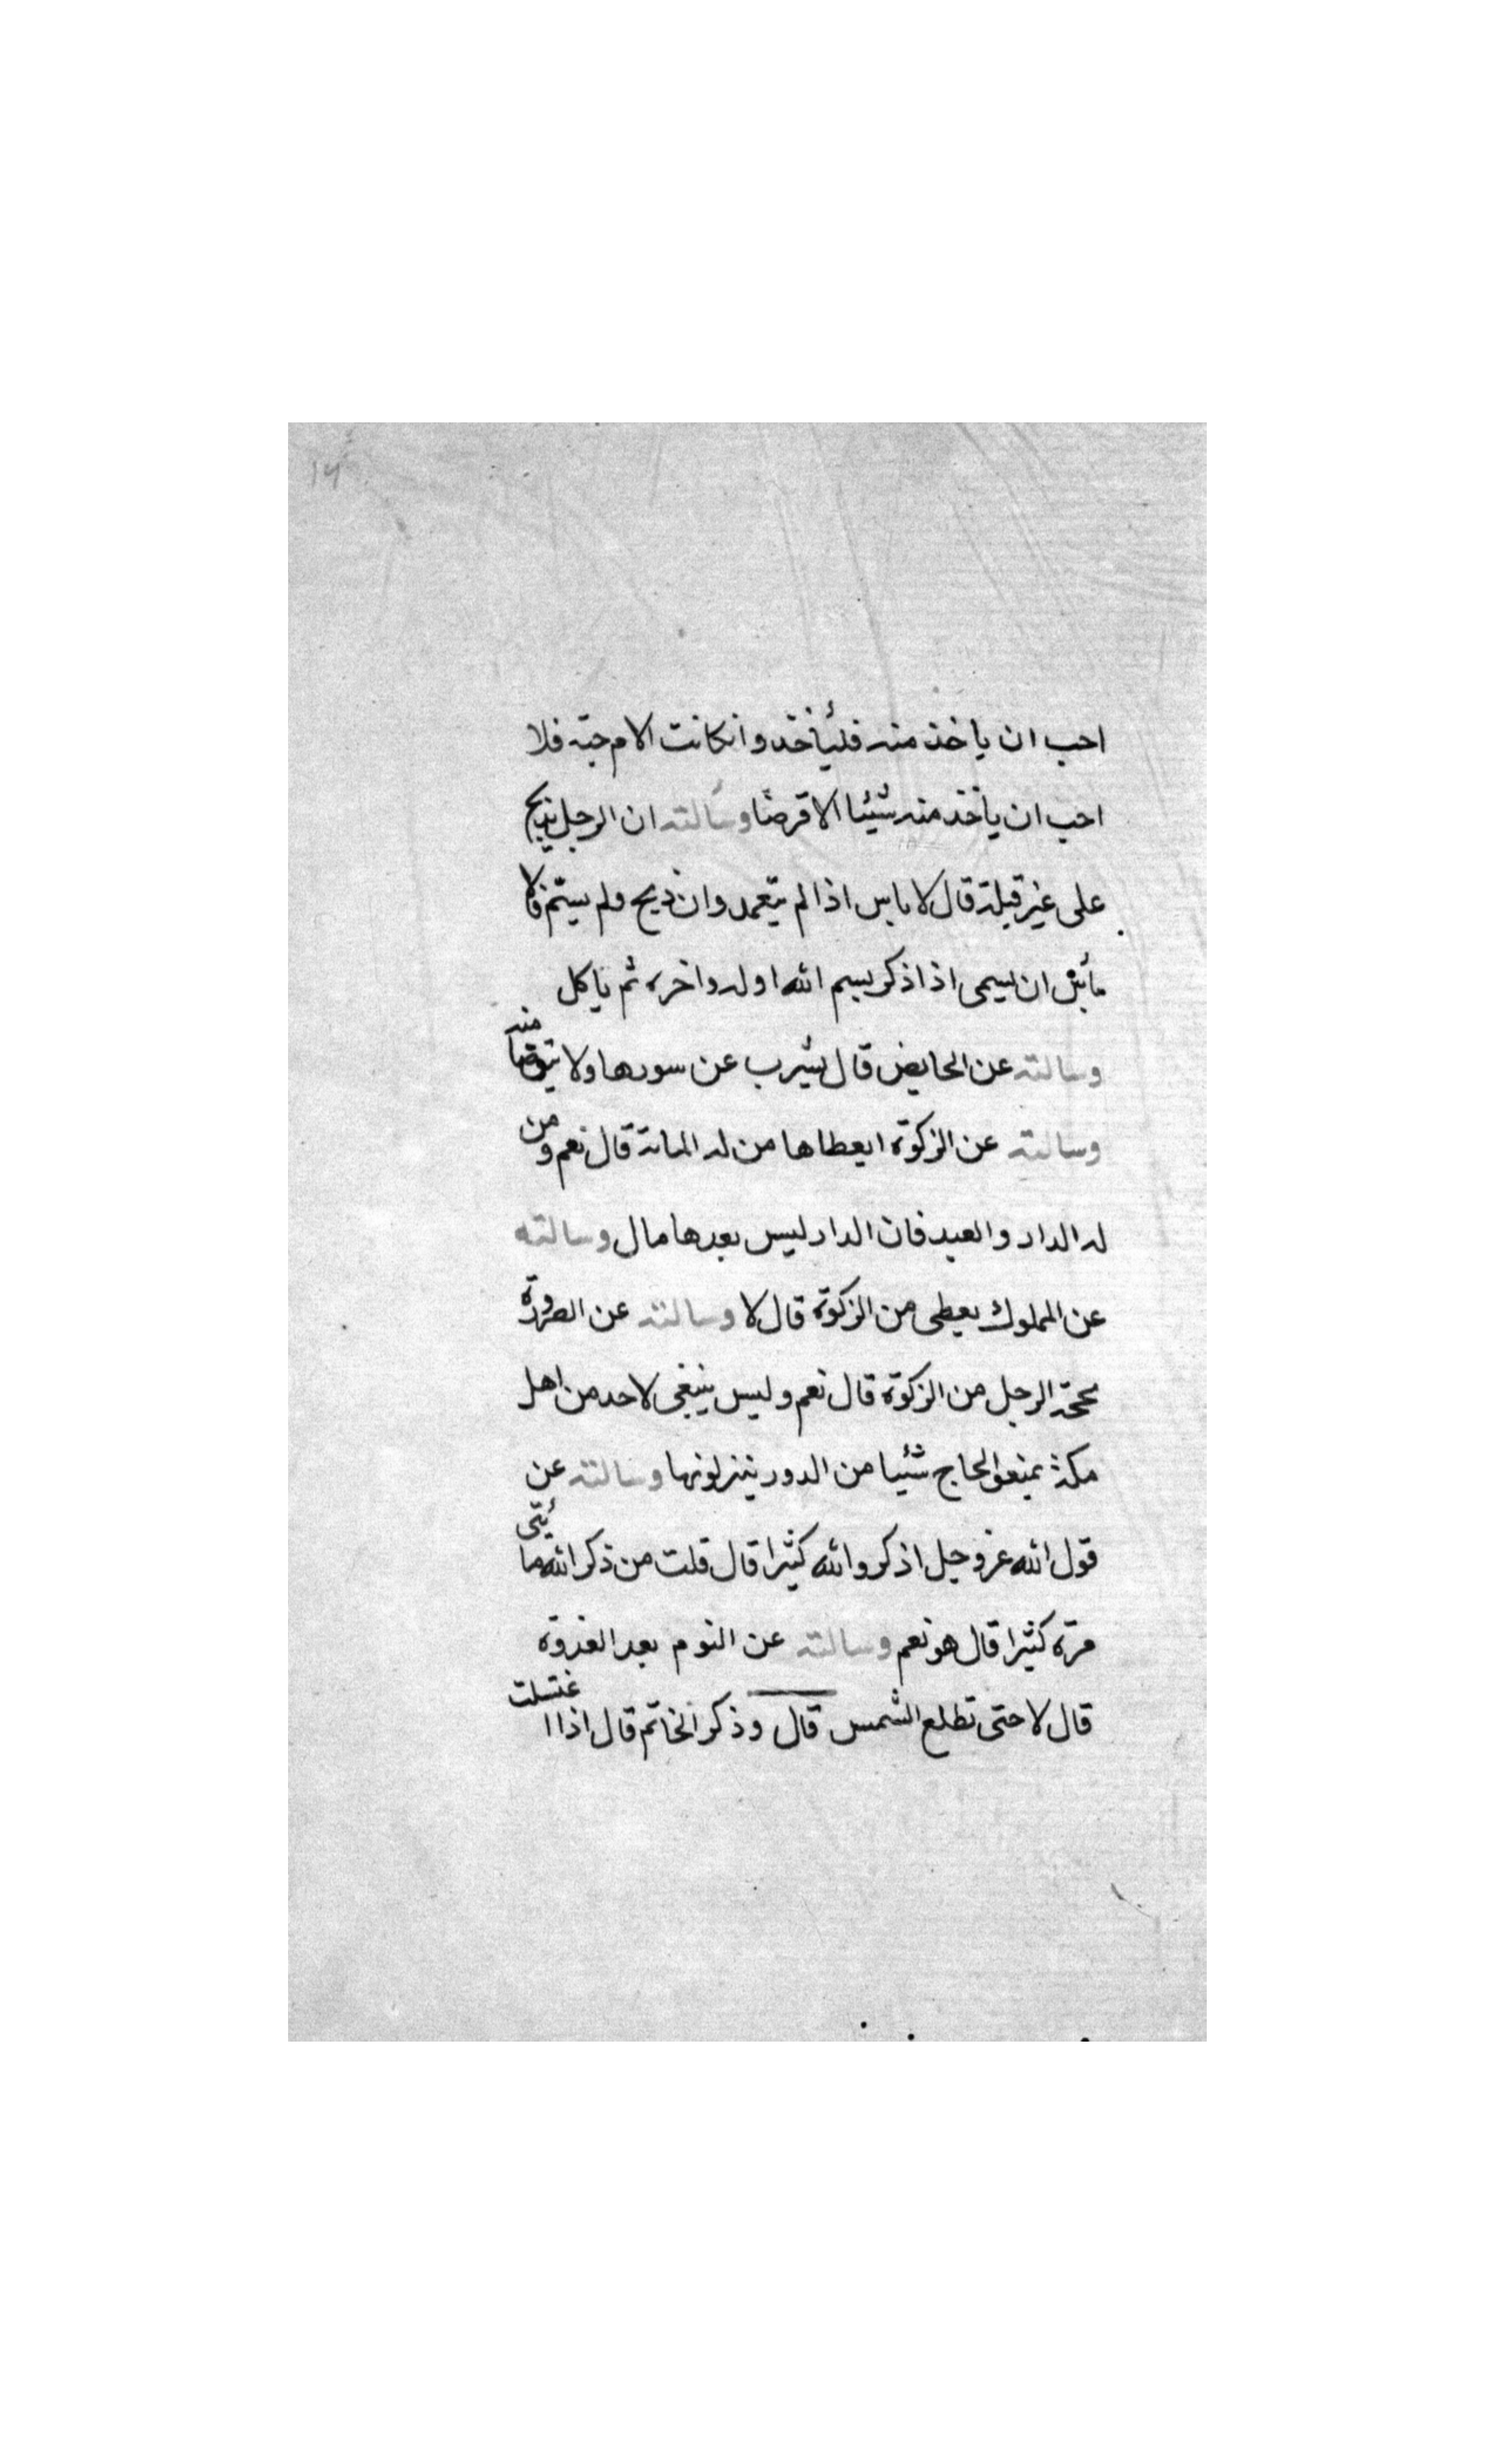 ١٦
احب ان ياخذ منه فليأخذ وانكانت الام حيّة فلا
احب ان يأخذ منه شيئا الا قرضًا وسألته ان الرجل يذبح
على غير قبلة قال لا باس اذا لم يتعمد وان ذبح ولم يسمّ فلا
بأس ان يسمى اذا ذكر بسم الله اوله واخره ثم ياكل
وسالته عن الحايض قال يشرب عن سورها ولا يتوضا منه
وسالته عن الزكوة ايعطاها من له الماتة قال نعم ومن
له الدار والعبد فان الدار ليس بعدها مال وسالته
عن المملوك يعطى من الزكوة قال لا وسالته عن الصرورة
يحجّه الرجل من الزكوة قال نعم وليس ينبغى لاحد من اهل
مكة يمنعو الحاج شئيا من الدور ينزلونها وسالته عن
قول الله عز وجل اذكروا الله كثيرا قال قلت من ذكر الله مأيتى
مرة كثيرا قال هو نعم وسالته عن النوم بعد الغدوة
قال لا حتى تطلع الشمس قال وذكر الخاتم قال اذا اغتسلت